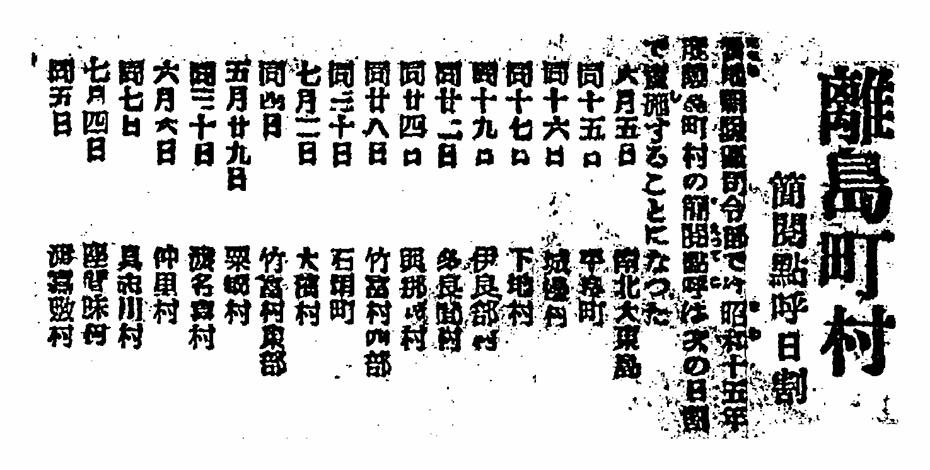 離島町村
簡閲點呼日割
聯隊區司令部では昭和十五年
度離島町村の簡閲點呼は次の日割
で實施することになつた
六月五日 南北大東島
同十五日 平良町
同十六日 城邊村
同十七日 下地村
同十九日 伊良部村
同廿二日 多良間村
同廿四日 與那國村
同廿八日 竹富村西部
同三十日 石垣町
七月二日 大濱村
同四日 竹富村東部
五月廿九日 粟國村
同三十日 渡名喜村
六月六日 仲里村
同七日 具志川村
七月四日 座間味村
同五日 渡嘉敷村